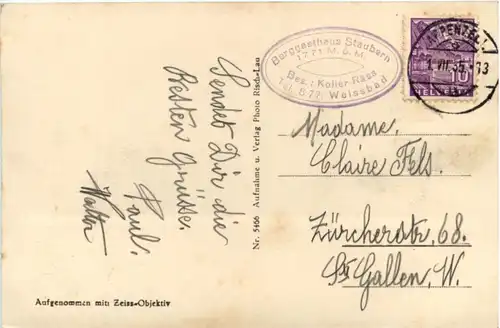 Berggasthaus Staubern
1771 M. ü. M.
Bes.: Koller-Räss
Tel. 877 Weissbad
APPENZELL
1. VII. 35 - 13
10
HELVETIA
Sendet Dir die
Besten Grüsse.
Paul.
Walter
Nr. 5466 Aufnahme u. Verlag Photo Risch-Lau
Madame.
Claire Fels.
Zürcherstr. 68.
St Gallen, W.
Aufgenommen mit Zeiss-Objektiv